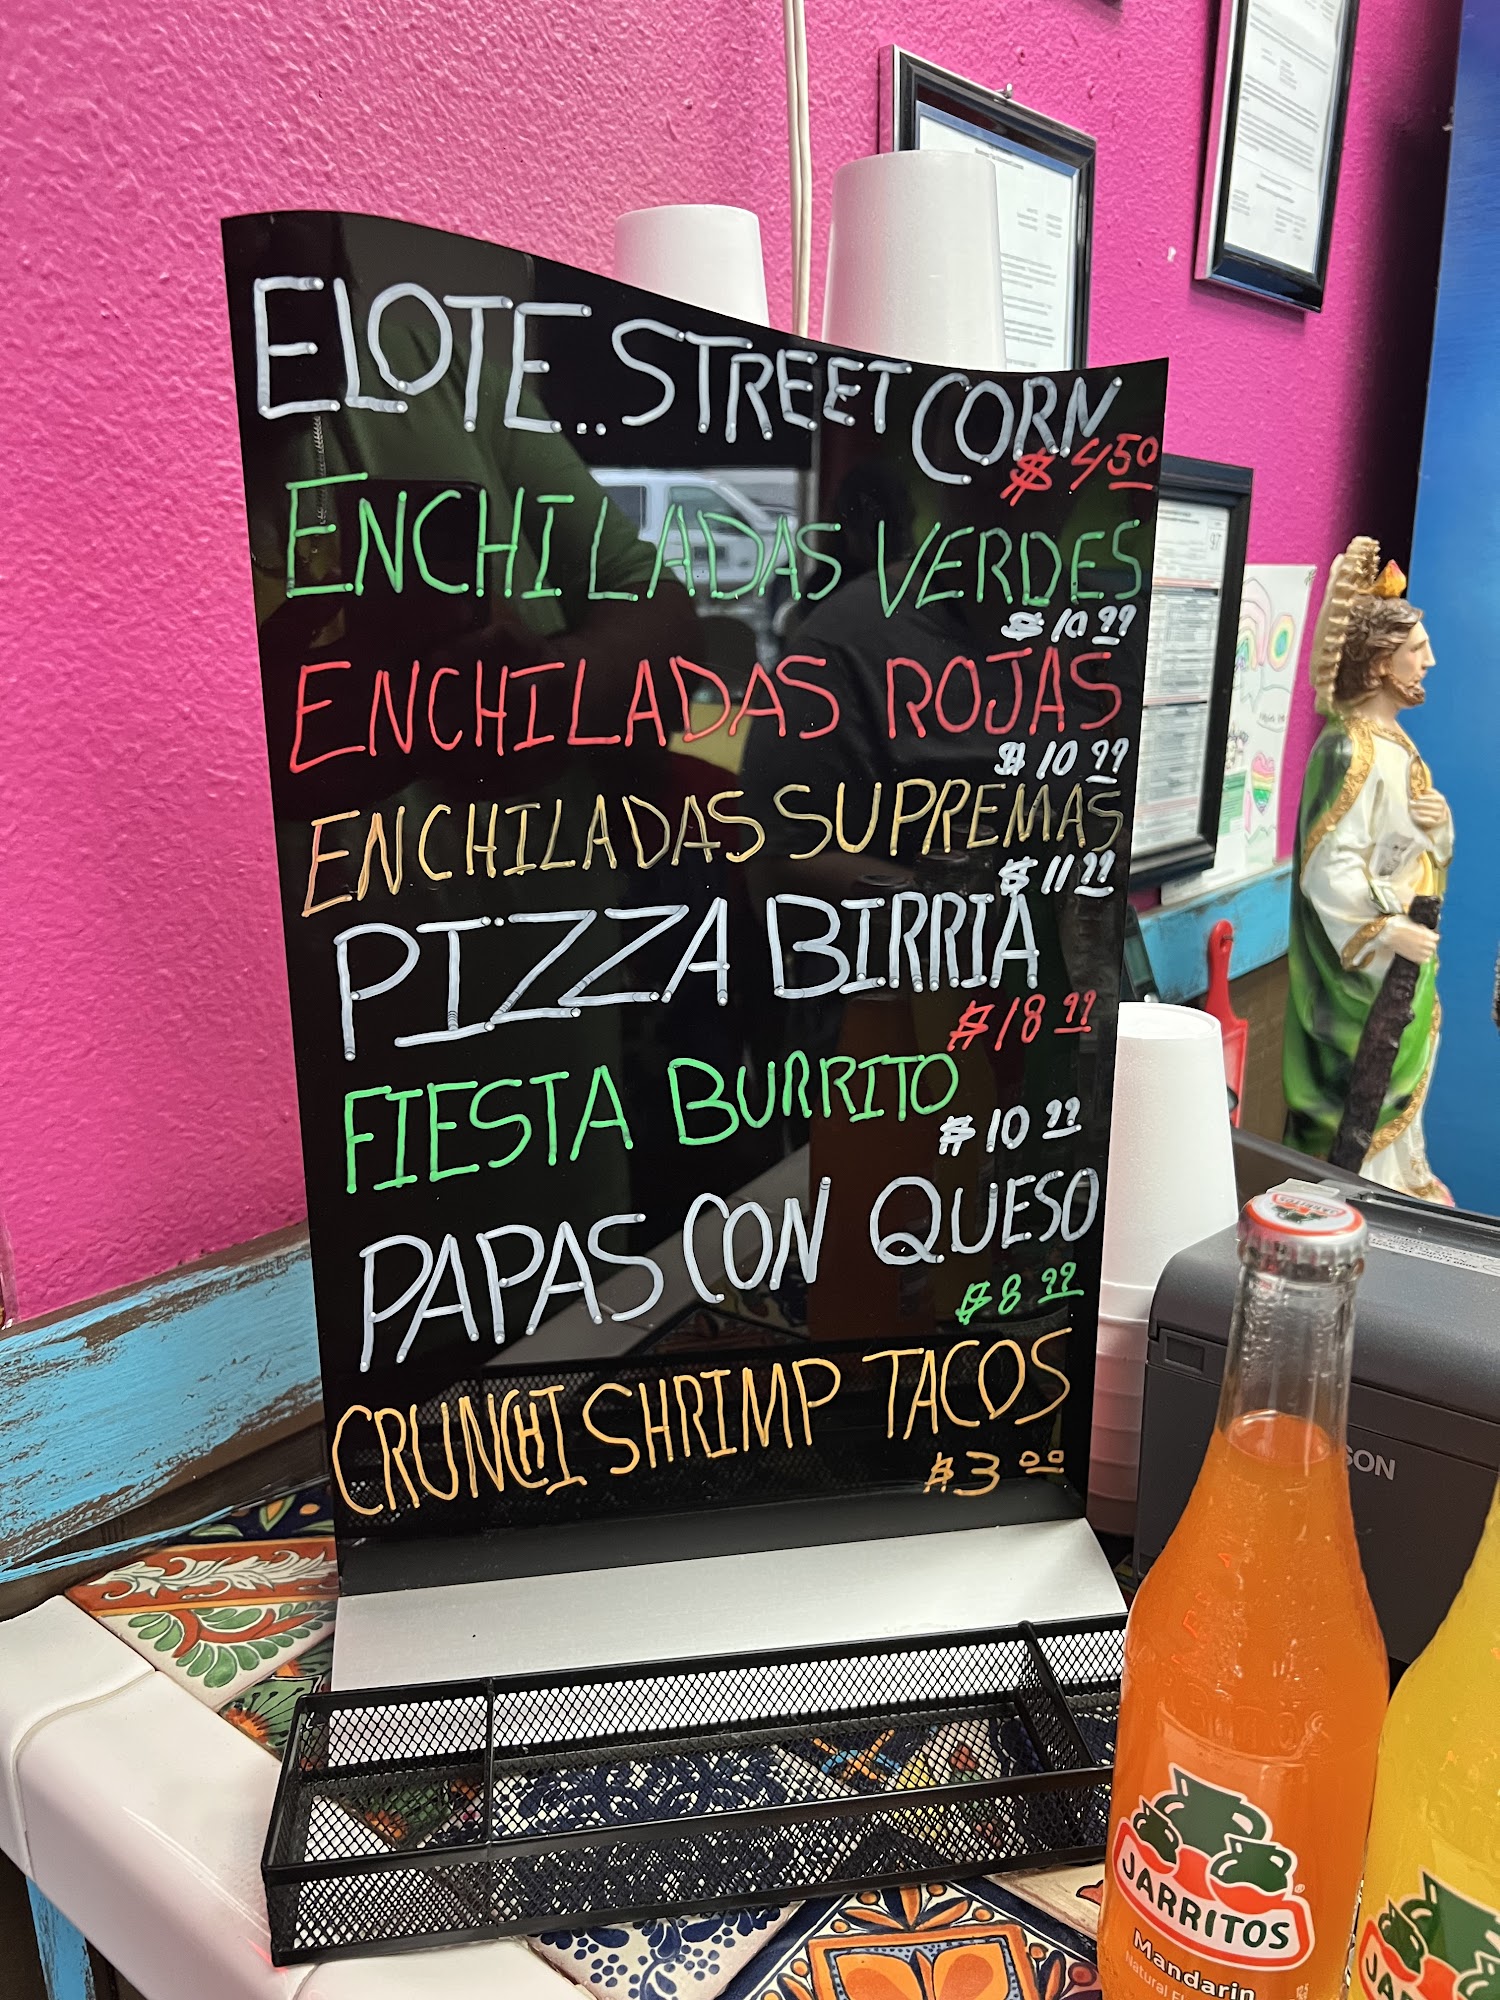 ELOTE.. STREET CORN
$4.50
ENCHILADAS VERDES
$10.99
ENCHILADAS ROJAS
$10.99
ENCHILADAS SUPREMAS
$11.99
PIZZA BIRRIA
$18.99
FIESTA BURRITO
$10.99
PAPAS CON QUESO
$8.99
CRUNCHI SHRIMP TACOS
$3.00
JARRITOS
Mandarin